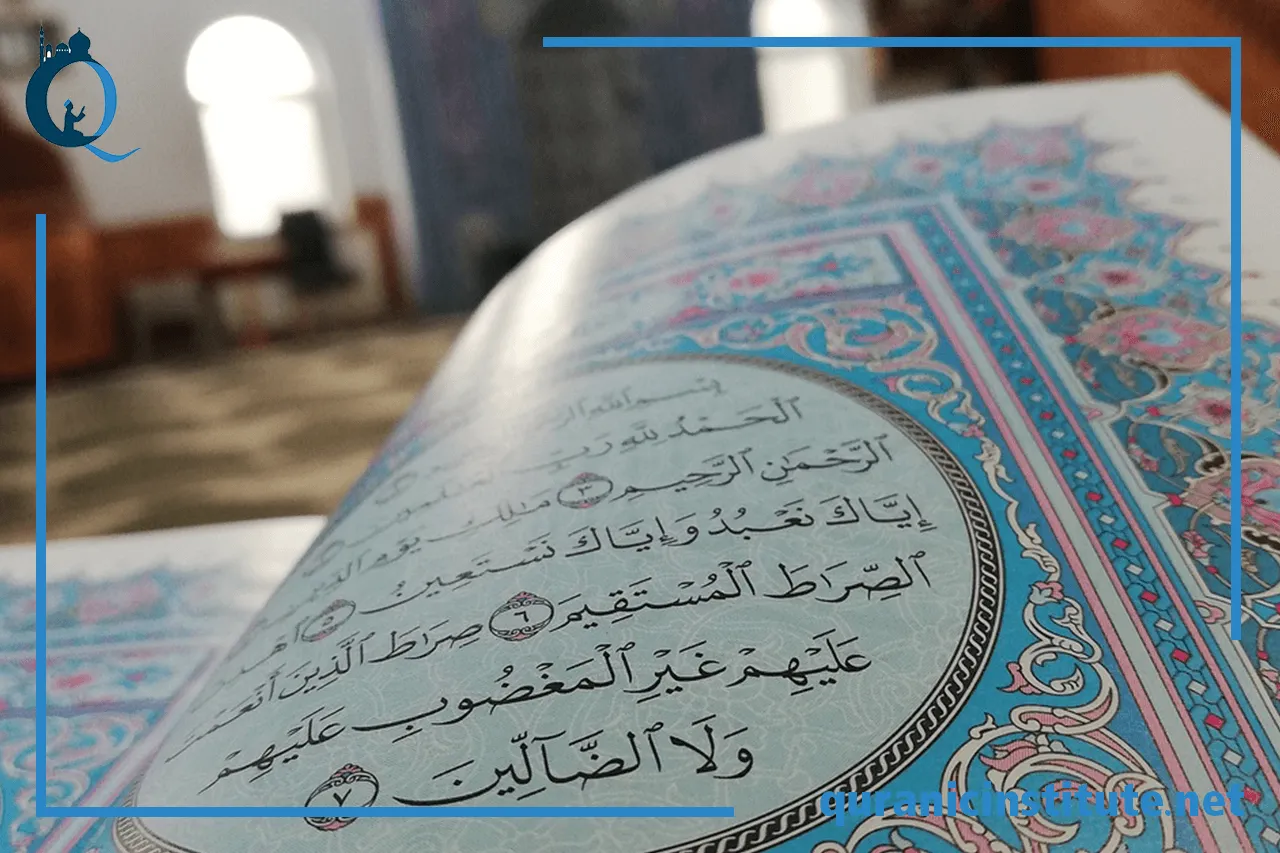 بِسْمِ ٱللَّهِ
ٱلْحَمْدُ لِلَّهِ رَبِّ
ٱلرَّحْمَٰنِ ٱلرَّحِيمِ ٣ مَٰلِكِ يَوْمِ ٱلدِّينِ
إِيَّاكَ نَعْبُدُ وَإِيَّاكَ نَسْتَعِينُ ٥ ٱهْدِنَا
ٱلصِّرَٰطَ ٱلْمُسْتَقِيمَ ٦ صِرَٰطَ ٱلَّذِينَ أَنْعَمْتَ
عَلَيْهِمْ غَيْرِ ٱلْمَغْضُوبِ عَلَيْهِمْ
وَلَا ٱلضَّآلِّينَ ٧
quranicinstitute.net